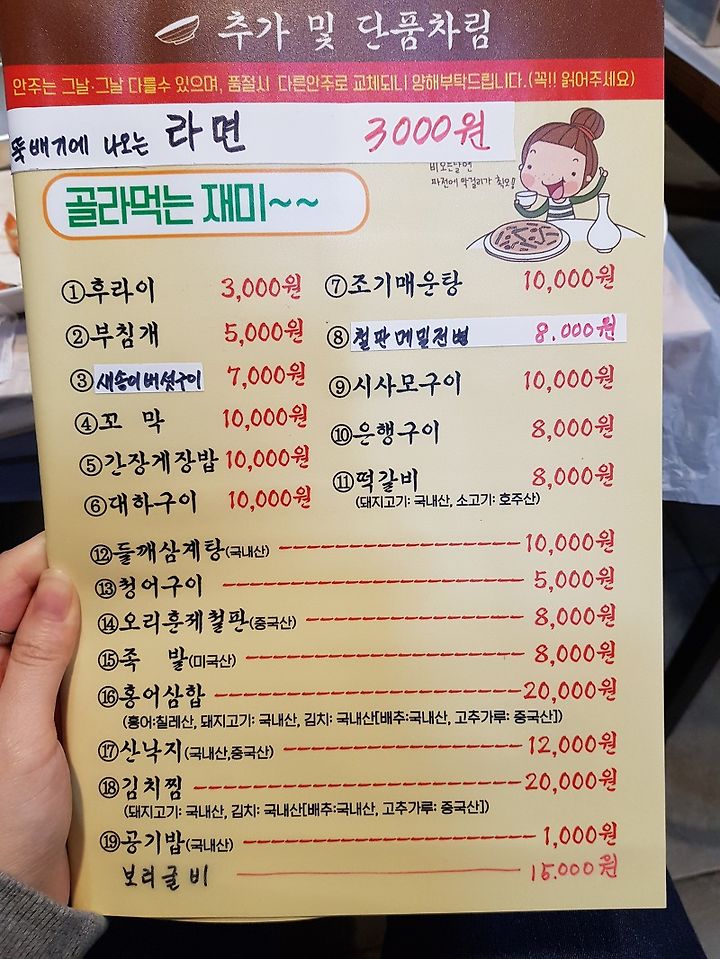 추가 및 단품차림
안주는 그날·그날 다를수 있으며, 품절시 다른안주로 교체되니 양해부탁드립니다.(꼭!! 읽어주세요)
뚝배기에 나오는 라면 3000원
비오는날엔
파전에 막걸리가 최고!
골라먹는 재미~~
①후라이 3,000원 ⑦조기매운탕 10,000원
②부침개 5,000원 ⑧철판메밀전병 8.000원
③새송이버섯구이 7,000원 ⑨시사모구이 10,000원
④꼬 막 10,000원 ⑩은행구이 8,000원
⑤간장게장밥 10,000원 ⑪떡갈비 8,000원
(돼지고기: 국내산, 소고기: 호주산)
⑥대하구이 10,000원
⑫들깨삼계탕(국내산) 10,000원
⑬청어구이 5,000원
⑭오리훈제철판(중국산) 8,000원
⑮족 발(미국산) 8,000원
⑯홍어삼합 20,000원
(홍어:칠레산, 돼지고기: 국내산, 김치: 국내산[배추:국내산, 고추가루: 중국산])
⑰산낙지(국내산,중국산) 12,000원
⑱김치찜 20,000원
(돼지고기: 국내산, 김치: 국내산[배추:국내산, 고추가루: 중국산])
⑲공기밥(국내산) 1,000원
보리굴비 15.000원